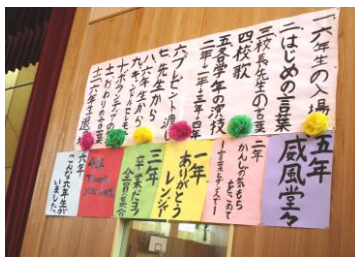 一 六年生の入場
二 はじめの言葉
三 校長先生の言葉
四 校歌
五 各学年の演技
二年・一年・三年・四年
六 プレゼント渡し
七 先生から
八 六年生から
十一 おわりの言葉
十二 六年生退場
五年
威風堂々
二年
かんしゃの気もち
をこめて
一年
ありがとう
レンジャー
三年
卒業だヨ
全員集合
六年
こんな六年生が
いました。